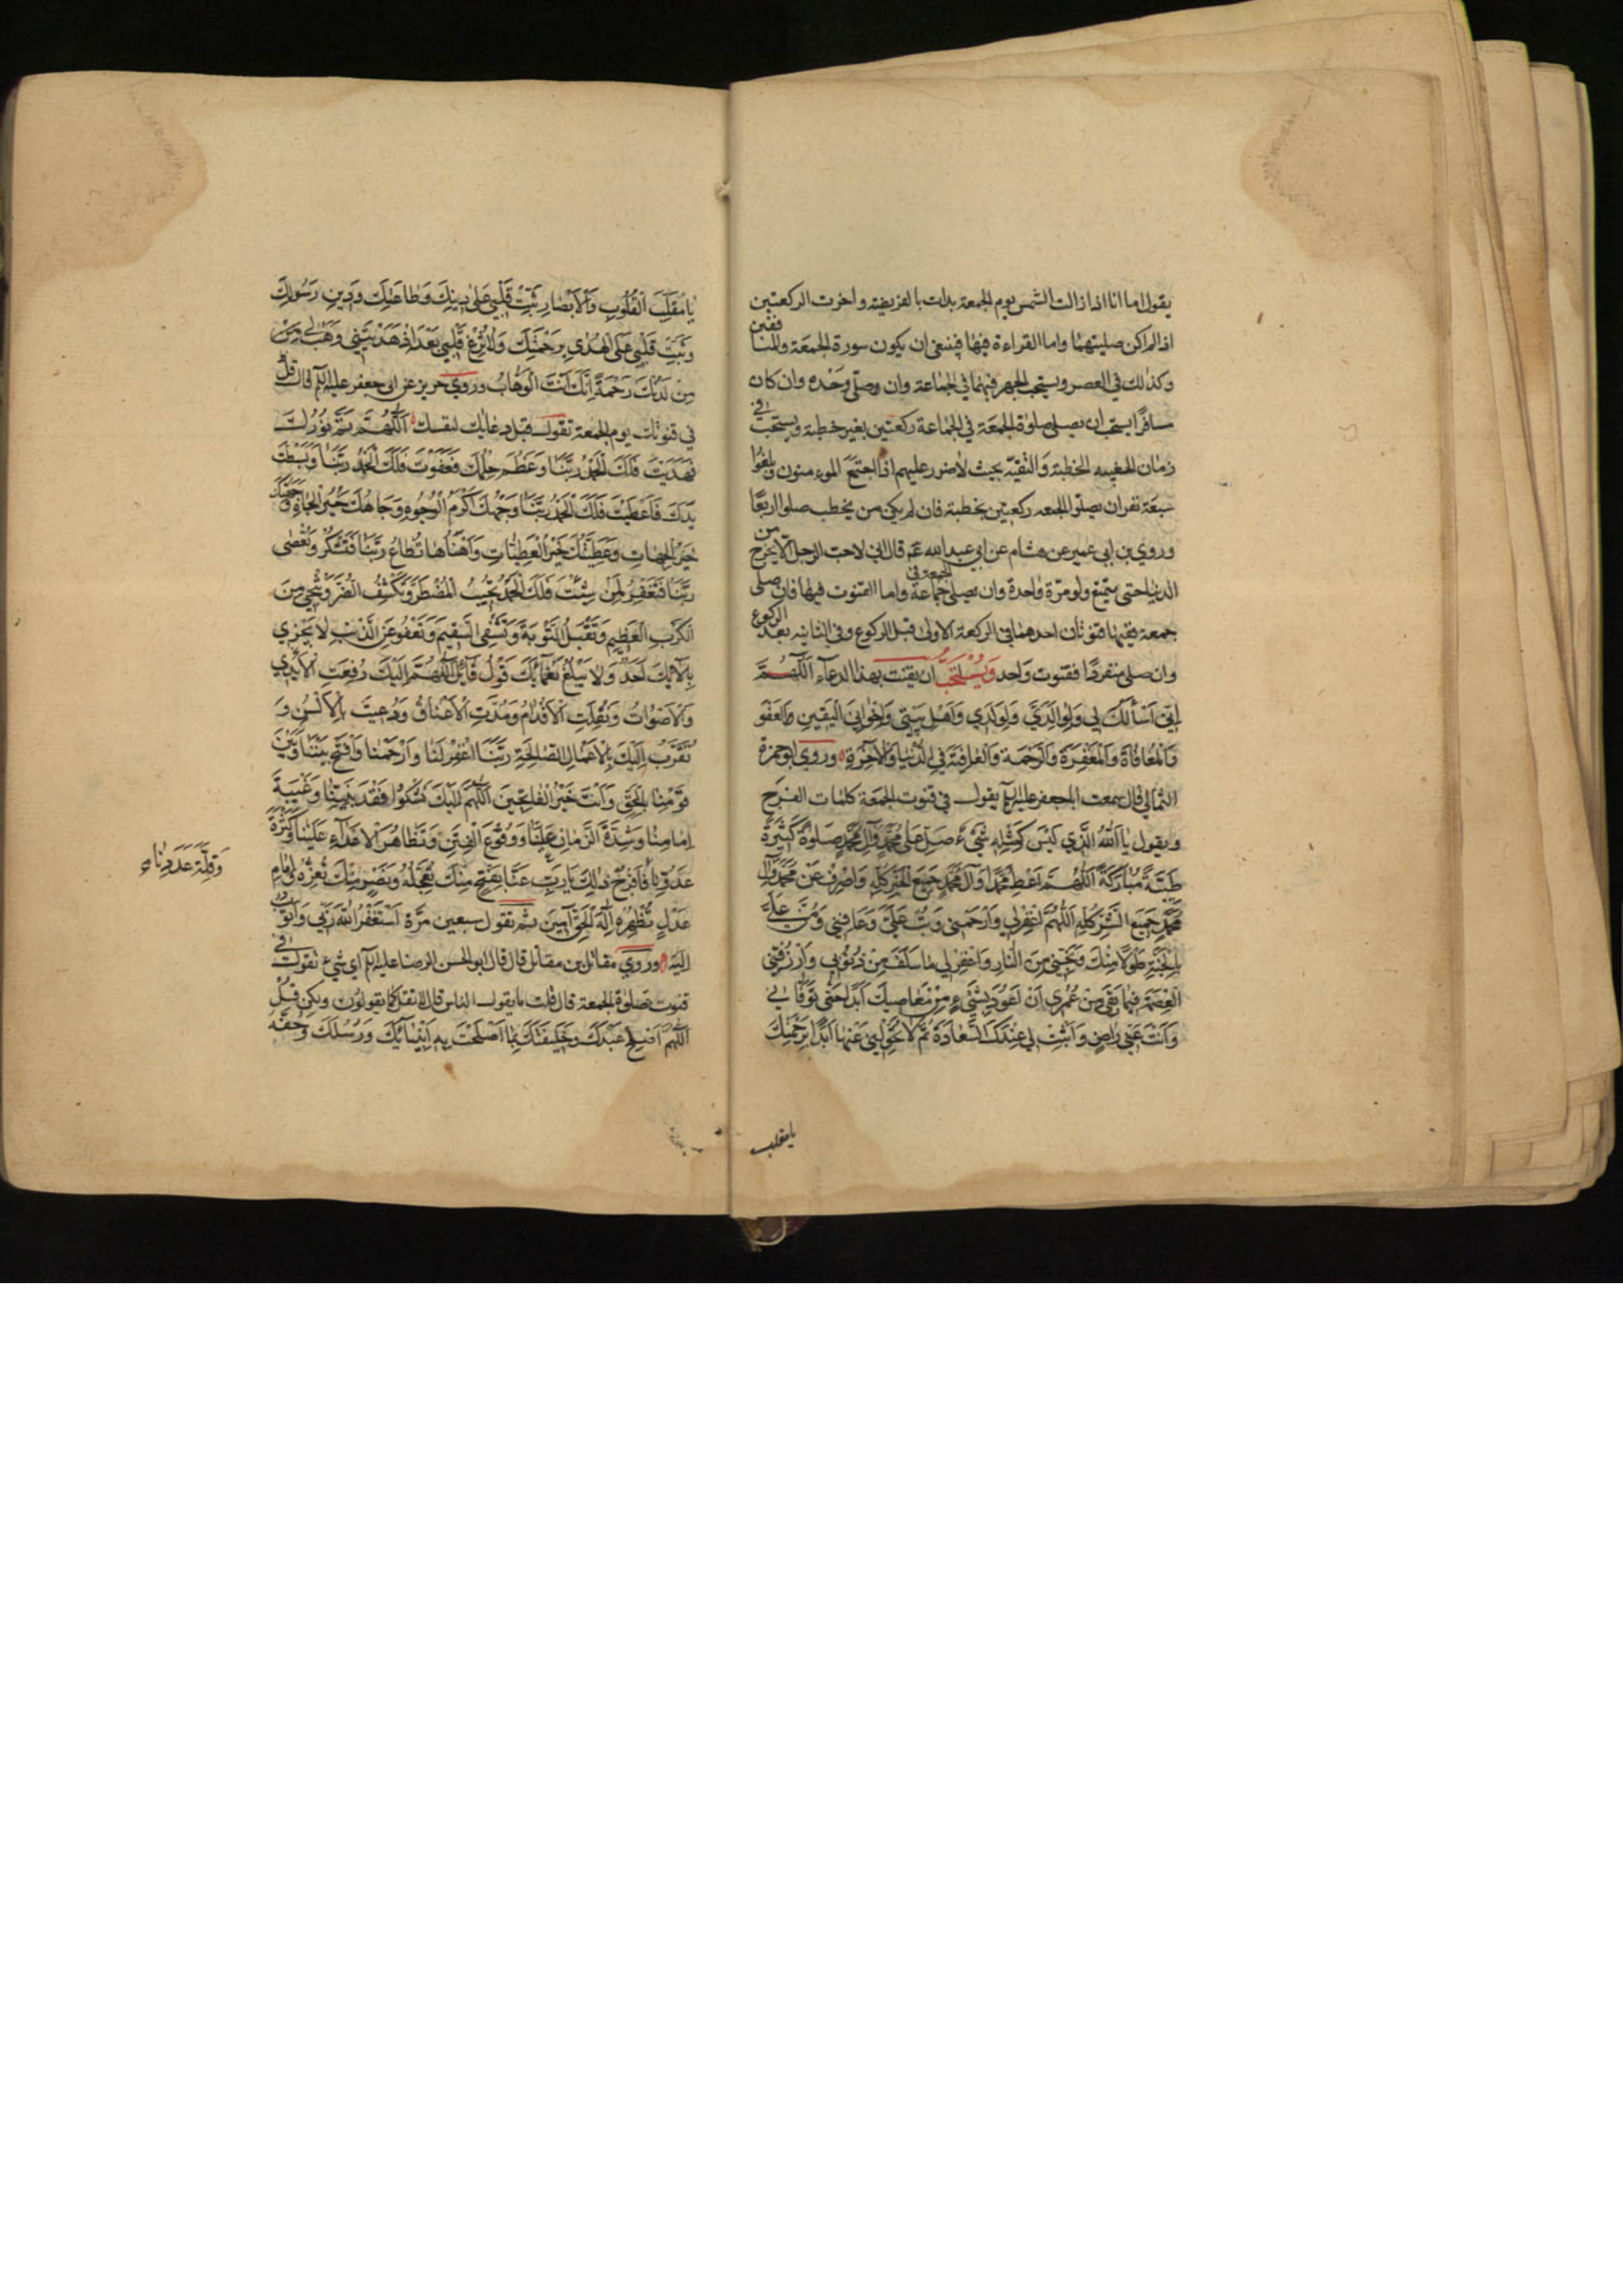 يقول اما انا اذا زالت الشمس يوم الجمعة بدات بالفريضة واخرت الركعتين
اذا لم اكن صليتهما واما القراءة فيها فينبغي ان يكون سورة الجمعة والمنافقين
وكذلك في العصر ويستحب الجهر فيهما في الجماعة وان وصلى وحده وان كان
مسافرًا يستحب ان يصلى صلوة الجمعة في الجماعة ركعتين بغير خطبة ويستحب في
زمان الغيبه الخطبة والتقيّه بحيث لا ضرر عليهم اذا اجتمع المومنون وبلغوا
سبعة نفر ان يصلوا الجمعه ركعتين بخطبة فان لم يكن من يخطب صلوا اربعًا
وروي بن ابي عمير عن هشام عن ابي عبد الله عم قال اني لاحب الرجل الا يخرج من
الدنيا حتى يتمتع ولو مرّة واحدة وان يصلي الجمعة في جماعة واما القنوت فيها فان صلى
جمعة ففيها قنوتان احدهما في الركعة الاولى قبل الركوع وفي الثانيه بعد الركوع
وان صلى منفردًا فقنوت واحد وَيُسْتَحَبُّ ان يقنت بهذا الدعاء اَللّٰهُمَّ
اِنّي اَسْأَلُكَ لي وَلِوالِدَيَّ وَلِوَلَدي وَاَهْلِ بَيْتي وَاِخْواني اَلْيَقينَ وَالعَفْوَ
وَالْمُعافاةَ وَالْمَغْفِرَةَ وَالرَّحْمَةَ وَالعافِيَةَ فِي الدُّنْيا وَالْآخِرَةِ وروي ابو حمزة
الثمالي قال سمعت ابا جعفر عليه السلم يقول في قنوت الجمعة كلمات الفرج
ويقول يا اَللهُ الَّذي لَيْسَ كَمِثْلِهِ شَيْءٌ صَلِّ عَلى مُحَمَّدٍ وَآلِ مُحَمَّدٍ صَلوةً كَثيرَةً
طَيِّبَةً مُبارَكَةً اَللّٰهُمَّ اَعْطِ مُحَمَّدًا وَآلَ مُحَمَّدٍ جَميعَ الْخَيْرِ كُلِّهِ وَاصْرِفْ عَنْ مُحَمَّدٍ وَآلِ
مُحَمَّدٍ جَميعَ الشَّرِّ كُلِّهِ اَللّٰهُمَّ اغْفِرْ لي وَارْحَمْني وَتُبْ عَلَيَّ وَعافِني وَمُنَّ عَلَيَّ
بِالْجَنَّةِ طَوْلًا مِنْكَ وَنَجِّني مِنَ النّارِ وَاغْفِرْ لي ما سَلَفَ مِنْ ذُنُوبي وَارْزُقْني
الْعِصْمَةَ فيما بَقِيَ مِنْ عُمْري اَنْ اَعُودَ بِشَيْءٍ مِنْ مَعاصيكَ اَبَدًا حَتّى تَوَفّاني
وَاَنْتَ عَنّي راضٍ وَاَثْبِتْ لي عِنْدَكَ السَّعادَةَ ثُمَّ لا تُحَوِّلْني عَنْها اَبَدًا بِرَحْمَتِكَ
يا مقلب
يا مُقَلِّبَ الْقُلُوبِ وَالْاَبْصارِ ثَبِّتْ قَلْبي عَلى دينِكَ وَطاعَتِكَ وَدينِ رَسُولِكَ
وَثَبِّتْ قَلْبي عَلَى الْهُدى بِرَحْمَتِكَ وَلا تُزِغْ قَلْبي بَعْدَ اِذْ هَدَيْتَني وَهَبْ لي مِنْ
مِنْ لَدُنْكَ رَحْمَةً اِنَّكَ اَنْتَ الْوَهّابُ وروي حريز عن ابي جعفر عليه السلم قال قل
في قنوتك يوم الجمعة تقول قبل دعائك لنفسك اَللّٰهُمَّ تَمَّ نُورُكَ
فَهَدَيْتَ فَلَكَ الْحَمْدُ رَبَّنا وَعَظُمَ حِلْمُكَ فَعَفَوْتَ فَلَكَ الْحَمْدُ رَبَّنا وَبَسَطْتَ
يَدَكَ فَاَعْطَيْتَ فَلَكَ الْحَمْدُ رَبَّنا وَجْهُكَ اَكْرَمُ الْوُجُوهِ وَجاهُكَ خَيْرُ الْجاهِ وَجِهَتُكَ
خَيْرُ الْجِهاتِ وَعَطِيَّتُكَ خَيْرُ الْعَطِيّاتِ وَاَهْنَأُها تُطاعُ رَبَّنا فَتَشْكُرُ وَتُعْصى
رَبَّنا فَتَغْفِرُ لِمَنْ شِئْتَ فَلَكَ الْحَمْدُ تُجيبُ الْمُضْطَرَّ وَتَكْشِفُ الضُّرَّ وَتُنْجي مِنَ
الْكَرْبِ الْعَظيمِ وَتَقْبَلُ التَّوْبَةَ وَتَشْفِي السَّقيمَ وَتَعْفُو عَنِ الذَّنْبِ لا يَجْزي
بِآلائِكَ اَحَدٌ وَلا يَبْلُغُ نَعْمائَكَ قَوْلُ قائِلٍ اَللّٰهُمَّ اِلَيْكَ رُفِعَتِ الْاَيْدي
وَالْاَصْواتُ وَنُقِلَتِ الْاَقْدامُ وَمُدَّتِ الْاَعْناقُ وَدُعيتَ بِالْاَلْسُنِ وَ
تُقُرِّبَ اِلَيْكَ بِالْاَعْمالِ الصّالِحَةِ رَبَّنَا اغْفِرْ لَنا وَارْحَمْنا وَافْتَحْ بَيْنَنا وَبَيْنَ
قَوْمِنا بِالْحَقِّ وَاَنْتَ خَيْرُ الْفاتِحينَ اَللّٰهُمَّ اِلَيْكَ نَشْكُوا فَقْدَ نَبِيِّنا وَغَيْبَةَ
اِمامِنا وَشِدَّةَ الزَّمانِ عَلَيْنا وَوُقُوعَ الْفِتَنِ وَتَظاهُرَ الْاَعْداءِ عَلَيْنا وَكَثْرَةَ
عَدُوِّنا فَافْرُجْ ذلِكَ يا رَبِّ عَنّا بِفَتْحٍ مِنْكَ تُعَجِّلُهُ وَنَصْرٍ مِنْكَ تُعِزُّهُ وَاِمامِ
وَقِلَّةَ عَدَدِنا
عَدْلٍ تُظْهِرُهُ اِلهَ الْحَقِّ آمينَ ثم تقول سبعين مرّة اَسْتَغْفِرُ اللهَ رَبّي وَاَتُوبُ
اِلَيْهِ وروي مقاتل بن مقاتل قال قال ابو الحسن الرضا عليه السلم اي شيء تقول في
قنوت صلوة الجمعة قال قلت ما يقول الناس قال لا تقل كما يقولون ولكن قل
اَللّٰهُمَّ اَصْلِحْ عَبْدَكَ وَخَليفَتَكَ بِما اَصْلَحْتَ بِهِ اَنْبِيائَكَ وَرُسُلَكَ وَحُفَّهُ